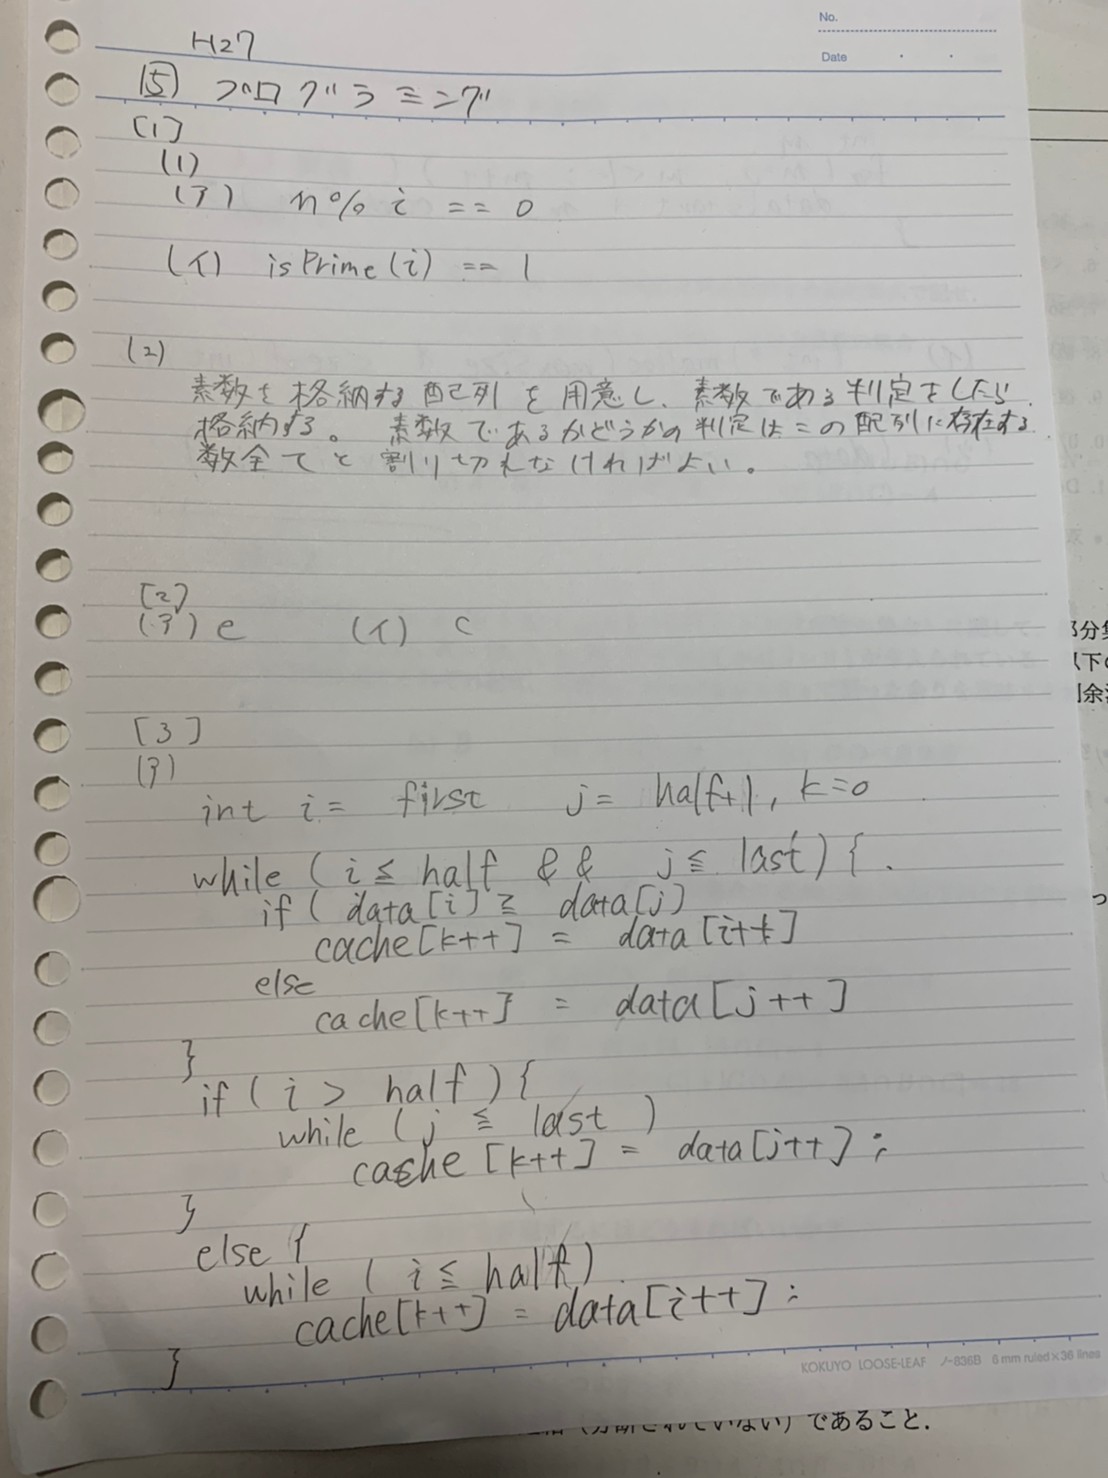 No.
Date
H27
5 プログラミング
[1]
(1)
(ア) n% i == 0
(イ) isPrime(i) == 1
(2)
素数を格納する配列を用意し、素数である判定をしたら
格納する。 素数であるかどうかの判定はこの配列に存在する
数全てと割り切れなければよい。
[2]
(ア) e (イ) c
[3]
(ア)
int i = first j = half+1, k=0
while (i ≦ half && j ≦ last) {
if( data[i] ≧ data[j)
cache[k++] = data[i++]
else
cache[k++] = data[j++]
}
if( i > half ) {
while ( j ≦ last )
cache [k++] = data[j++] ;
}
else {
while ( i ≦ half )
cache[k++] = data[i++] ;
}
KOKUYO LOOSE-LEAF ノ-836B 6 mm ruled×36 lines
であること.